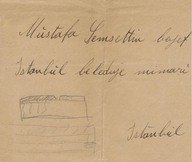 Müstafa Şemsettin
Istanbul belediye mimari
Istanbul